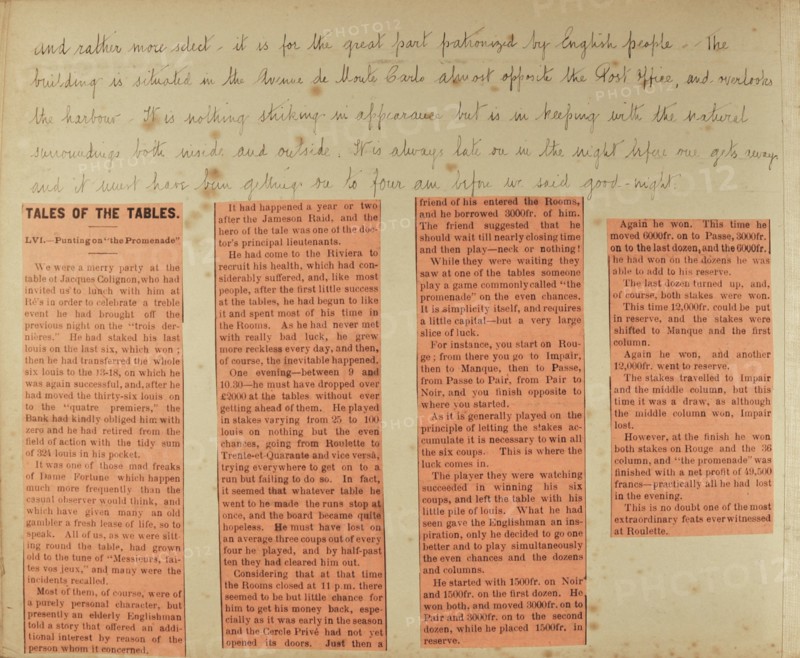 and rather more select - it is for the great part patronized by English people - The
building is situated in the Avenue de Monte Carlo almost opposite the Post Office, and overlooks
the harbour - It is nothing striking in appearance but is in keeping with the natural
surroundings both inside and outside. It is always late on in the night before one gets away
and it must have been getting on to four am before we said good-night.
TALES OF THE TABLES.
LVI.—Punting on "the Promenade"
We were a merry party at the
table of Jacques Colignon, who had
invited us to lunch with him at
Ré's in order to celebrate a treble
event he had brought off the
previous night on the "trois der-
nières." He had staked his last
louis on the last six, which won ;
then he had transferred the whole
six louis to the 13-18, on which he
was again successful, and, after he
had moved the thirty-six louis on
to the "quatre premiers," the
Bank had kindly obliged him with
zero and he had retired from the
field of action with the tidy sum
of 324 louis in his pocket.
It was one of those mad freaks
of Dame Fortune which happen
much more frequently than the
casual observer would think, and
which have given many an old
gambler a fresh lease of life, so to
speak. All of us, as we were sitt-
ing round the table, had grown
old to the tune of "Messieurs, fai-
tes vos jeux," and many were the
incidents recalled.
Most of them, of course, were of
a purely personal character, but
presently an elderly Englishman
told a story that offered an addi-
tional interest by reason of the
person whom it concerned.
It had happened a year or two
after the Jameson Raid, and the
hero of the tale was one of the doc-
tor's principal lieutenants.
He had come to the Riviera to
recruit his health, which had con-
siderably suffered, and, like most
people, after the first little success
at the tables, he had begun to like
it and spent most of his time in
the Rooms. As he had never met
with really bad luck, he grew
more reckless every day, and then,
of course, the inevitable happened.
One evening—between 9 and
10.30—he must have dropped over
£2000 at the tables without ever
getting ahead of them. He played
in stakes varying from 25 to 100
louis on nothing but the even
chances, going from Roulette to
Trente-et-Quarante and vice versâ,
trying everywhere to get on to a
run but failing to do so. In fact,
it seemed that whatever table he
went to he made the runs stop at
once, and the board became quite
hopeless. He must have lost on
an average three coups out of every
four he played, and by half-past
ten they had cleared him out.
Considering that at that time
the Rooms closed at 11 p.m. there
seemed to be but little chance for
him to get his money back, espe-
cially as it was early in the season
and the Cercle Privé had not yet
opened its doors. Just then a
friend of his entered the Rooms,
and he borrowed 3000fr. of him.
The friend suggested that he
should wait till nearly closing time
and then play—neck or nothing!
While they were waiting they
saw at one of the tables someone
play a game commonly called "the
promenade" on the even chances.
It is simplicity itself, and requires
a little capital—but a very large
slice of luck.
For instance, you start on Rou-
ge ; from there you go to Impair,
then to Manque, then to Passe,
from Passe to Pair, from Pair to
Noir, and you finish opposite to
where you started.
As it is generally played on the
principle of letting the stakes ac-
cumulate it is necessary to win all
the six coups. This is where the
luck comes in.
The player they were watching
succeeded in winning his six
coups, and left the table with his
little pile of louis. What he had
seen gave the Englishman an ins-
piration, only he decided to go one
better and to play simultaneously
the even chances and the dozens
and columns.
He started with 1500fr. on Noir
and 1500fr. on the first dozen. He
won both, and moved 3000fr. on to
Pair and 3000fr. on to the second
dozen, while he placed 1500fr. in
reserve.
Again he won. This time he
moved 6000fr. on to Passe, 3000fr.
on to the last dozen, and the 6000fr.
he had won on the dozens he was
able to add to his reserve.
The last dozen turned up, and,
of course, both stakes were won.
This time 12,000fr. could be put
in reserve, and the stakes were
shifted to Manque and the first
column.
Again he won, and another
12,000fr. went to reserve.
The stakes travelled to Impair
and the middle column, but this
time it was a draw, as although
the middle column won, Impair
lost.
However, at the finish he won
both stakes on Rouge and the 36
column, and "the promenade" was
finished with a net profit of 49,500
francs—practically all he had lost
in the evening.
This is no doubt one of the most
extraordinary feats ever witnessed
at Roulette.
PHOTO12